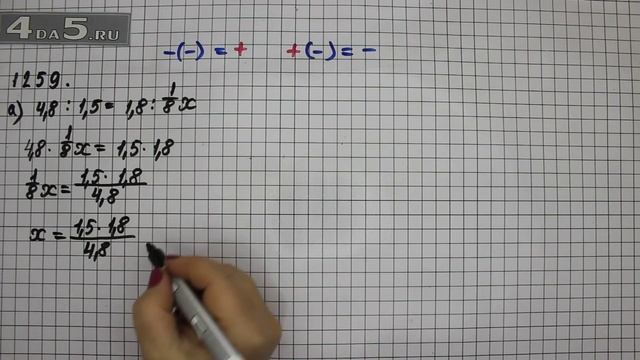 4DA5.RU
-(-) = + +(-) = -
1259.
а) 4,8 : 1,5 = 1,8 : 1/8 x
4,8 · 1/8 x = 1,5 · 1,8
1/8 x = 1,5 · 1,8 / 4,8
x = 1,5 · 1,8 / 4,8